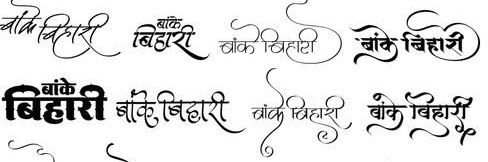 बांके बिहारी
बांके
बिहारी
बांके बिहारी
बांके बिहारी
बांके
बिहारी
बांके बिहारी
बांके बिहारी
बांके बिहारी